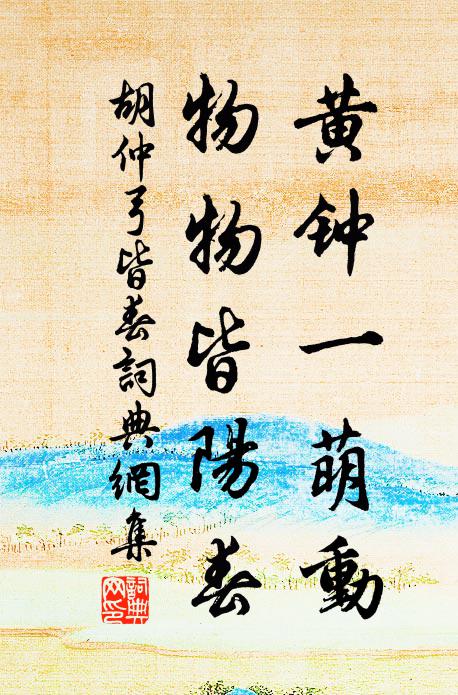 黄钟一萌動
物物皆陽春
胡仲弓皆春詞典網集